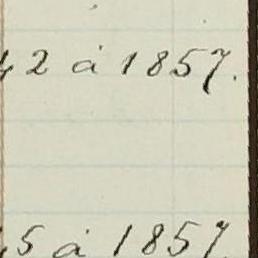 42 à 1857.
5 à 1857